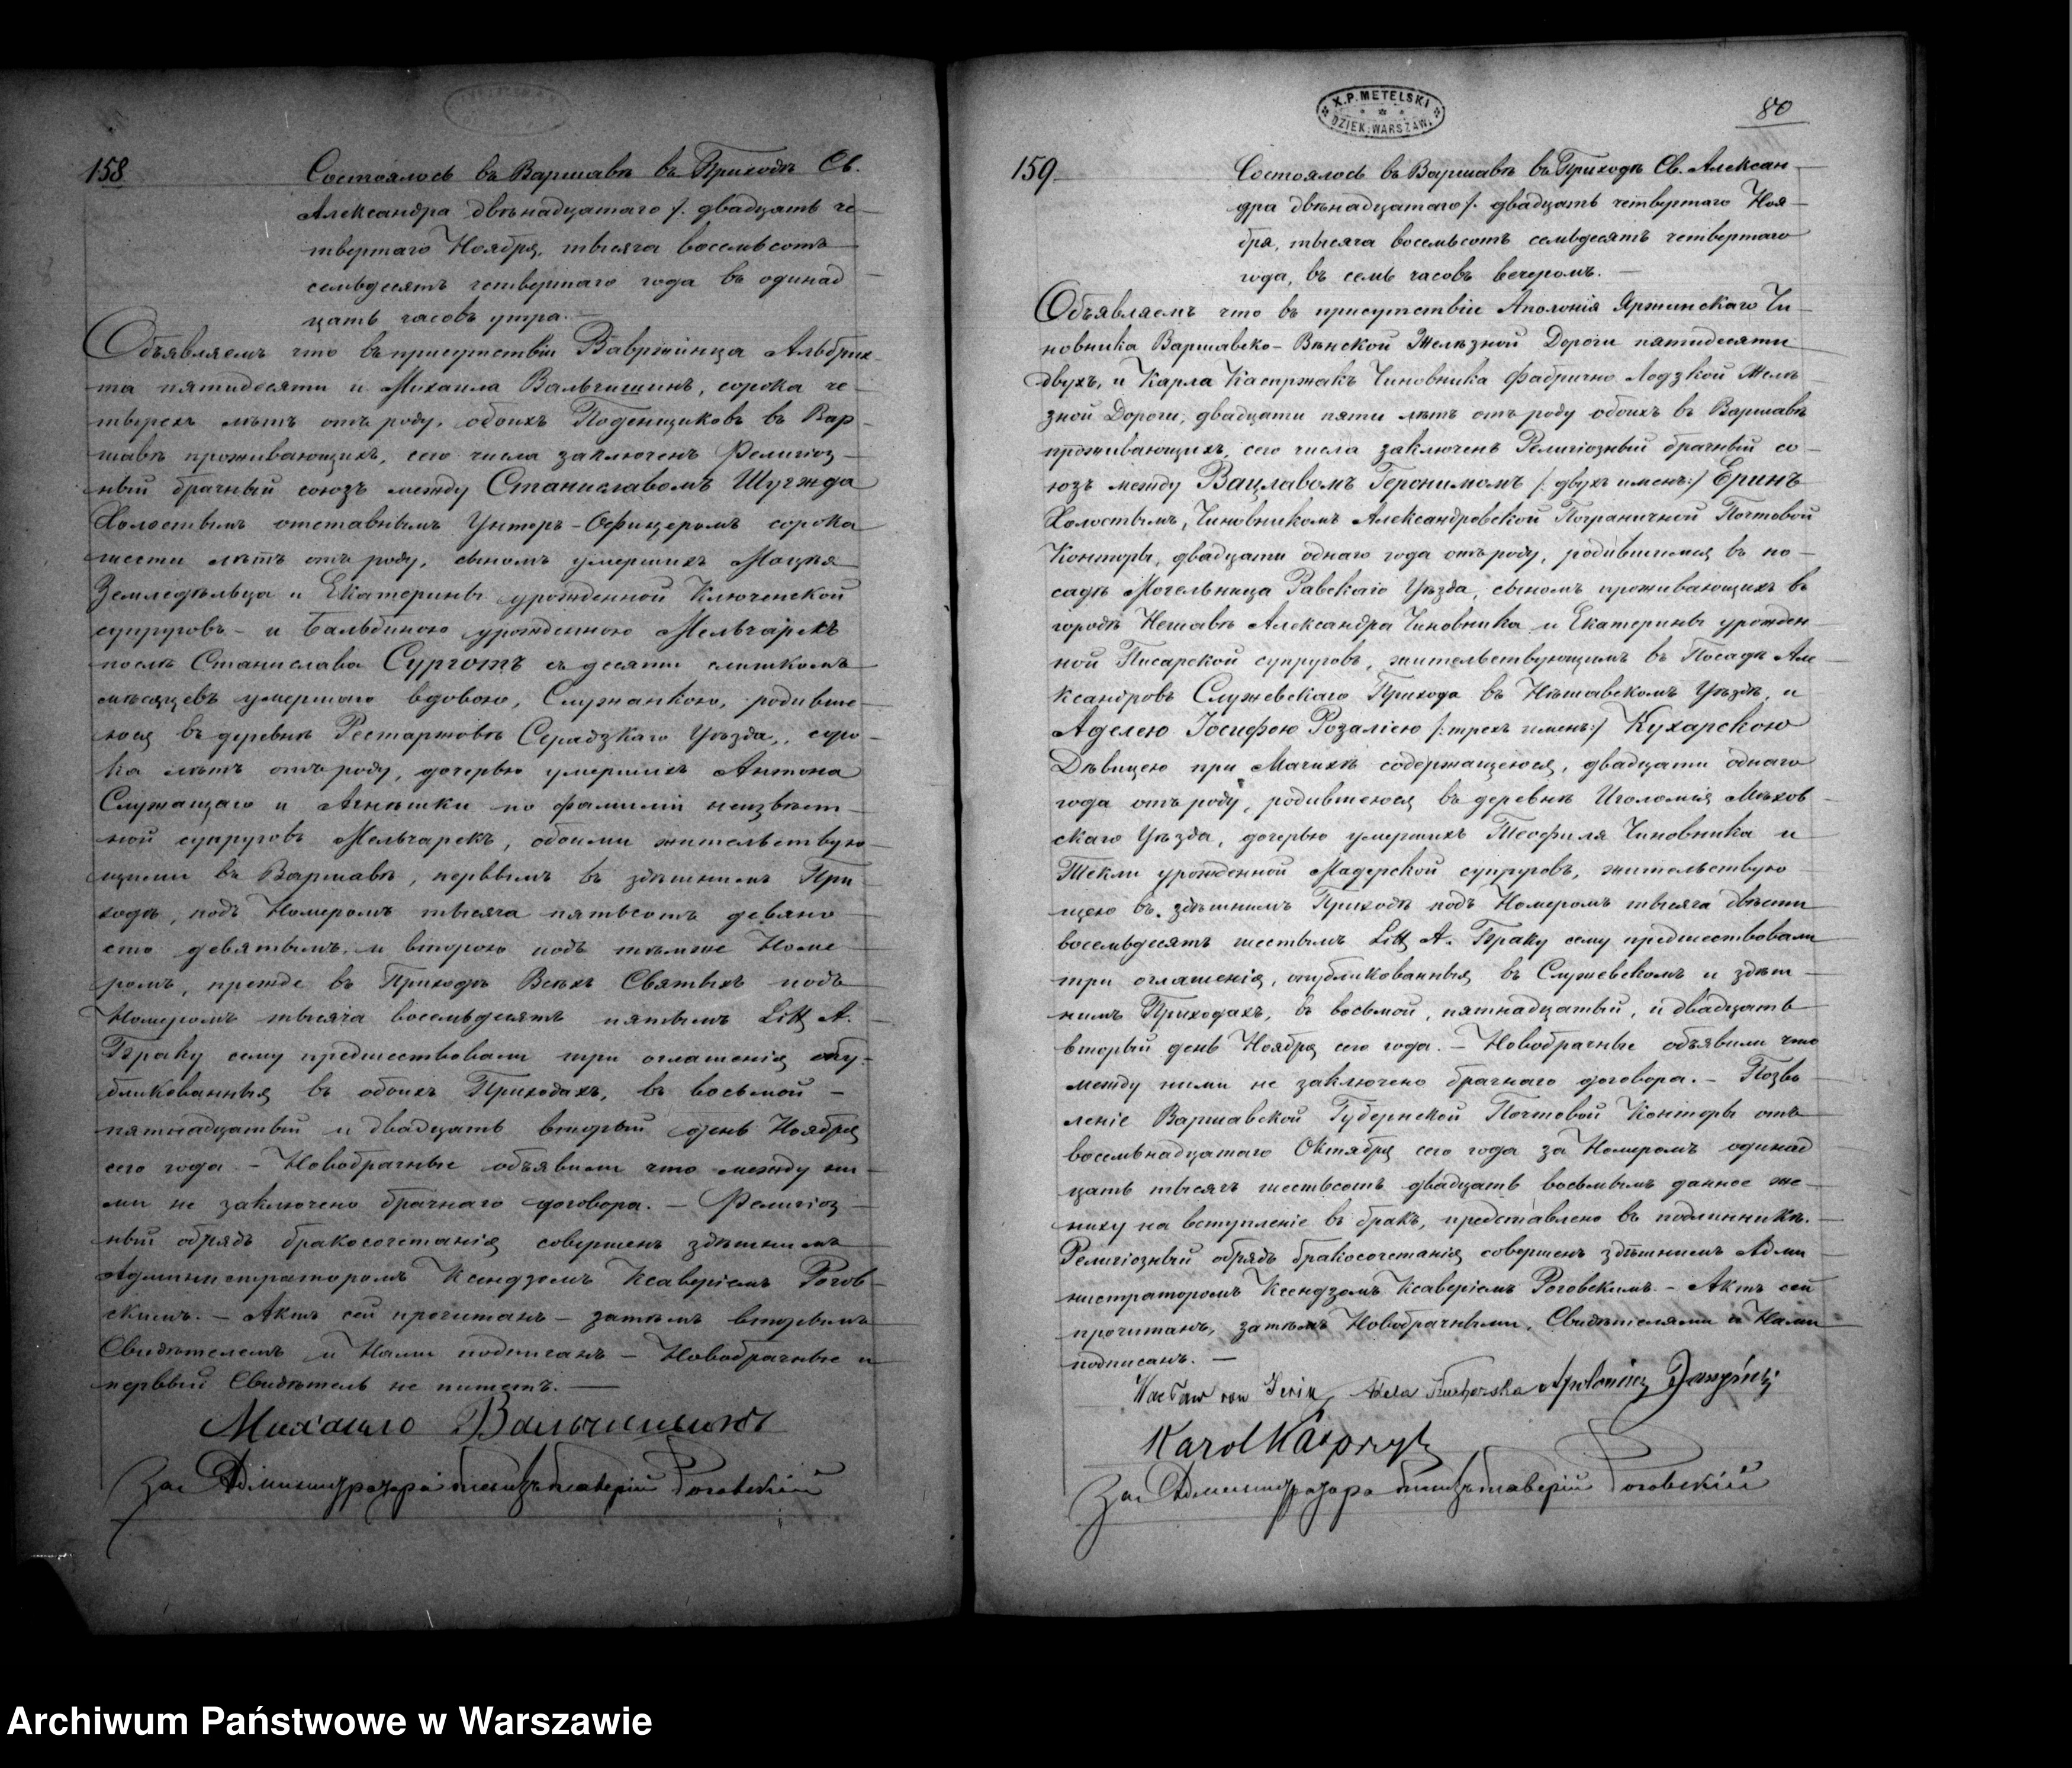 158
Состоялось въ Варшавѣ въ Приходѣ Св.
Александра двѣнадцатаго /. двадцать че-
твертаго Ноября, тысяча восемьсотъ
семьдесятъ четвертаго года въ одинад
цать часовъ утра. —
Объявляемъ что въ присутствіи Вавржинца Альбрих-
та пятидесяти и Михаила Вальчишинъ, сорока че-
тырехъ лѣтъ отъ роду, обоихъ Поденщиковъ въ Вар-
шавѣ проживающихъ, сего числа заключенъ Религіоз-
ный брачный союзъ между Станиславомъ Шугжда
Холостымъ отставнымъ Унтеръ-Офицеромъ сорока
шести лѣтъ отъ роду, сыномъ умершихъ Мацѣя
Земледѣльца и Екатерины урожденной Ключенской
супруговъ — и Бальбиною урожденною Мельчарекъ
послѣ Станислава Сурготъ съ десяти слишкомъ
мѣсяцевъ умершаго вдовою, Служанкою, родивше-
юся въ деревнѣ Рестартовѣ Серадзкаго Уѣзда, соро-
ка лѣтъ отъ роду, дочерью умершихъ Антона
Служащаго и Агнѣшки по фамиліи неизвѣст-
ной супруговъ Мельчарекъ, обоими жительствую-
щими въ Варшавѣ, первымъ въ здѣшнимъ При
ходѣ, подъ Номеромъ тысяча пятьсотъ девяно
сто девятымъ, и второю подъ тѣмже Номе
ромъ, прежде въ Приходѣ Всѣхъ Святыхъ подъ
Номеромъ тысяча восемьдесятъ пятымъ Litt A.
Браку сему предшествовали три оглашенія опу-
бликованныя въ обоихъ Приходахъ, въ восьмой —
пятнадцатый и двадцать вторый день Ноября
сего года — Новобрачные объявили что между ни-
ми не заключено брачнаго договора. — Религіоз-
ный обрядъ бракосочетанія совершенъ здѣшнимъ
Администраторомъ Ксендзомъ Ксаверіемъ Рогов-
скимъ. — Актъ сей прочитанъ — затѣмъ вторымъ
Свидѣтелемъ и Нами подписанъ — Новобрачные и
первый Свидѣтель не пишетъ. —
Михаило Вальчишинъ
За Администратора Ксендзъ Ксаверій Роговскій
X.P. METELSKI
DZIEK. WARSZAW.
80
159.
Состоялось въ Варшавѣ въ Приходѣ Св. Алексан-
дра двѣнадцатаго /. двадцать четвертаго Ноя-
бря, тысяча восемьсотъ семьдесятъ четвертаго
года, въ семь часовъ вечеромъ. —
Объявляемъ что въ присутствіи Аполонія Яржинскаго Чи-
новника Варшавско-Вѣнской Желѣзной Дороги пятидесяти
двухъ, и Карла Каспржакъ Чиновника Фабрично Лодзкой Желѣ
зной Дороги, двадцати пяти лѣтъ отъ роду обоихъ въ Варшавѣ
проживающихъ, сего числа заключенъ Религіозный брачный со-
юзъ между Вацлавомъ Геронимомъ /: двухъ именъ :/ Еринъ
Холостымъ, Чиновникомъ Александровской Пограничной Почтовой
Конторы, двадцати однаго года отъ роду, родившимся въ по-
садѣ Могельница Равскаго Уѣзда, сыномъ проживающихъ въ
городѣ Нешавѣ Александра Чиновника и Екатерины урожден-
ной Писарской супруговъ, жительствующимъ въ Посадѣ Але-
ксандровъ Служевскаго Прихода въ Нѣшавскомъ Уѣздѣ, и
Аделею Іосифою Розаліею /: трехъ именъ :/ Кухарскою
Дѣвицею при Мачихѣ содержащеюся, двадцати однаго
года отъ роду, родившеюся въ деревнѣ Иголомія Мѣхов-
скаго Уѣзда, дочерью умершихъ Теофиля Чиновника и
Текли урожденной Мадерской супруговъ, жительствую-
щею въ здѣшнимъ Приходѣ подъ Номеромъ тысяча двѣсти
восемьдесятъ шестымъ Litt A. Браку сему предшествовали
три оглашенія, опубликованныя въ Служевскомъ и здѣш-
нимъ Приходахъ, въ восьмой, пятнадцатый, и двадцать
вторый день Ноября сего года. — Новобрачные объявили что
между ними не заключено брачнаго договора. — Позво
леніе Варшавской Губернской Почтовой Конторы отъ
восемьнадцатаго Октября сего года за Номеромъ одинад
цать тысячъ шестьсотъ двадцать восьмымъ данное же-
ниху на вступленіе въ бракъ, представлено въ подлинникѣ. —
Религіозный обрядъ бракосочетанія совершенъ здѣшнимъ Адми-
нистраторомъ Ксендзомъ Ксаверіемъ Роговскимъ. — Актъ сей
прочитанъ, затѣмъ Новобрачными, Свидѣтелями и Нами
подписанъ. —
Wacław von Jerin Adela Kucharska Apoloniusz
Karol Kasprzyk
За Администратора Ксендзъ Ксаверій Роговскій
Archiwum Państwowe w Warszawie